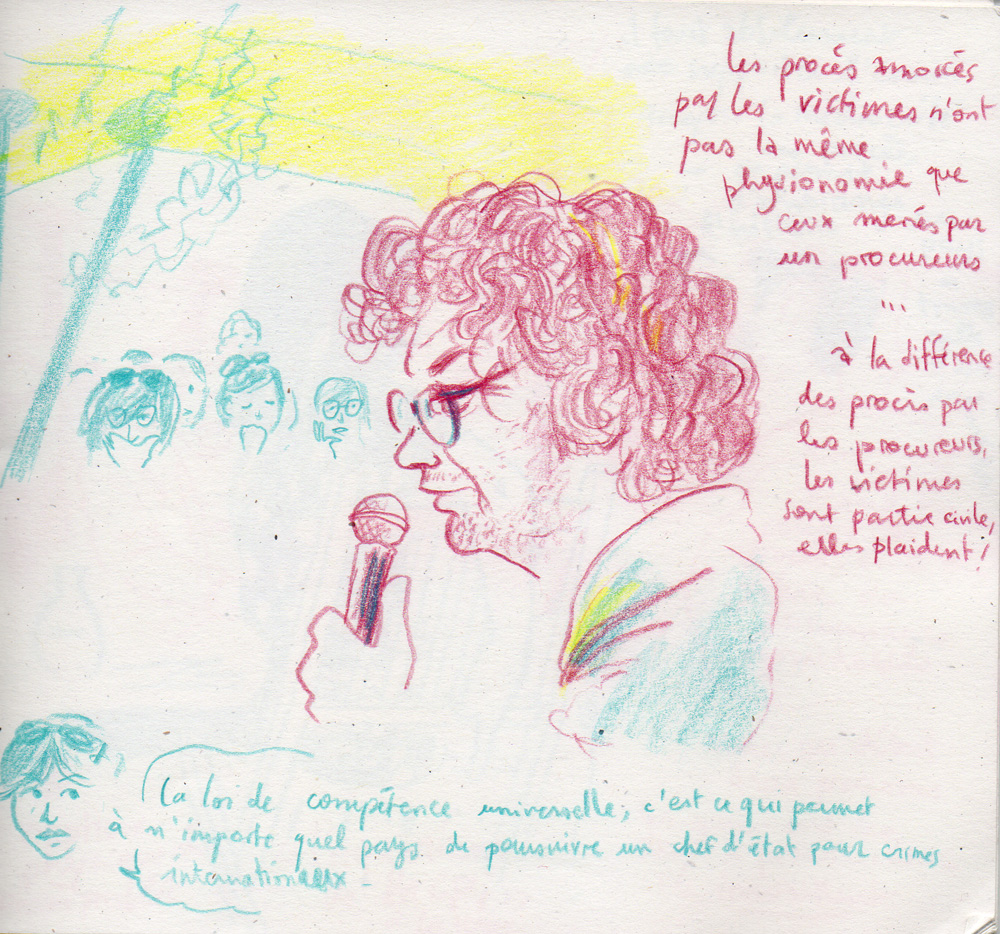 les procès amorcés
par les victimes n'ont
pas la même
physionomie que
ceux menés par
un procureurs
...
à la différence
des procès par
les procureurs,
les victimes
sont partie civile,
elles plaident !
La loi de compétence universelle, c'est ce qui permet
à n'importe quel pays de poursuivre un chef d'état pour crimes
internationaux -